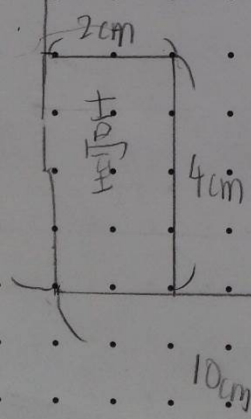 2cm
4cm
10cm